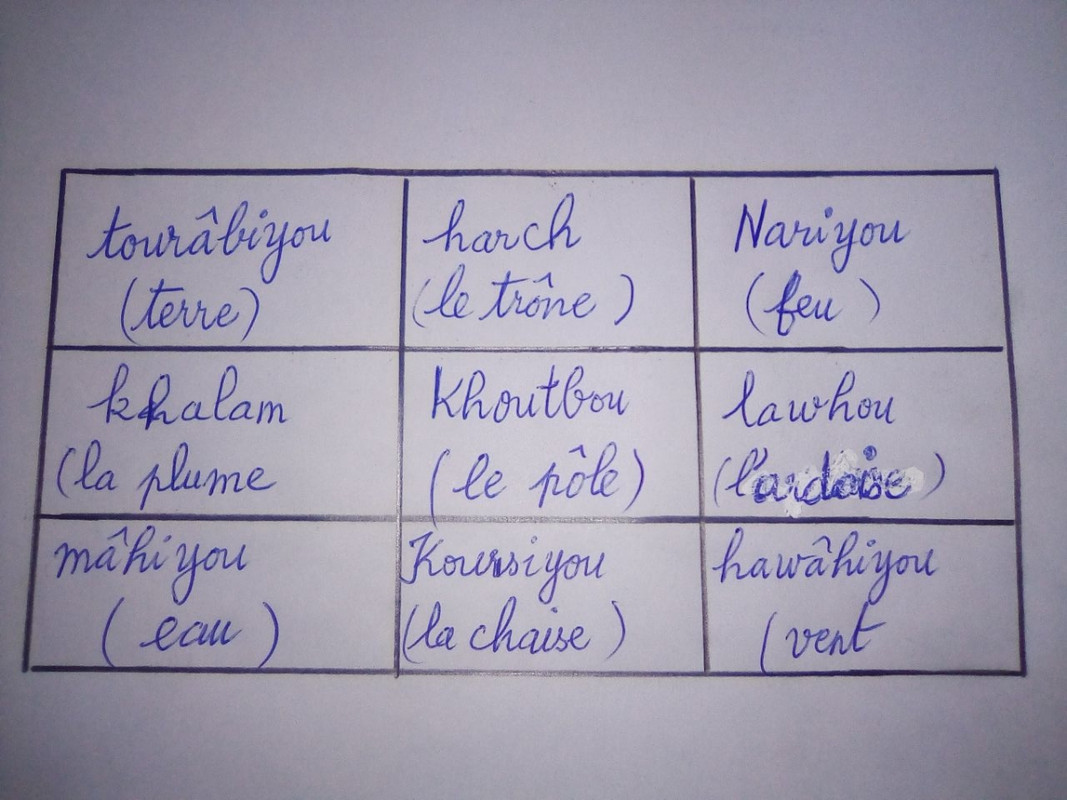 tourâbiyou
(terre)
harch
(le trône)
Nariyou
(feu)
khalam
(la plume
Khoutbou
(le pôle)
lawhou
(l'ardoise)
mâhiyou
(eau)
Koursiyou
(la chaise)
hawâhiyou
(vent